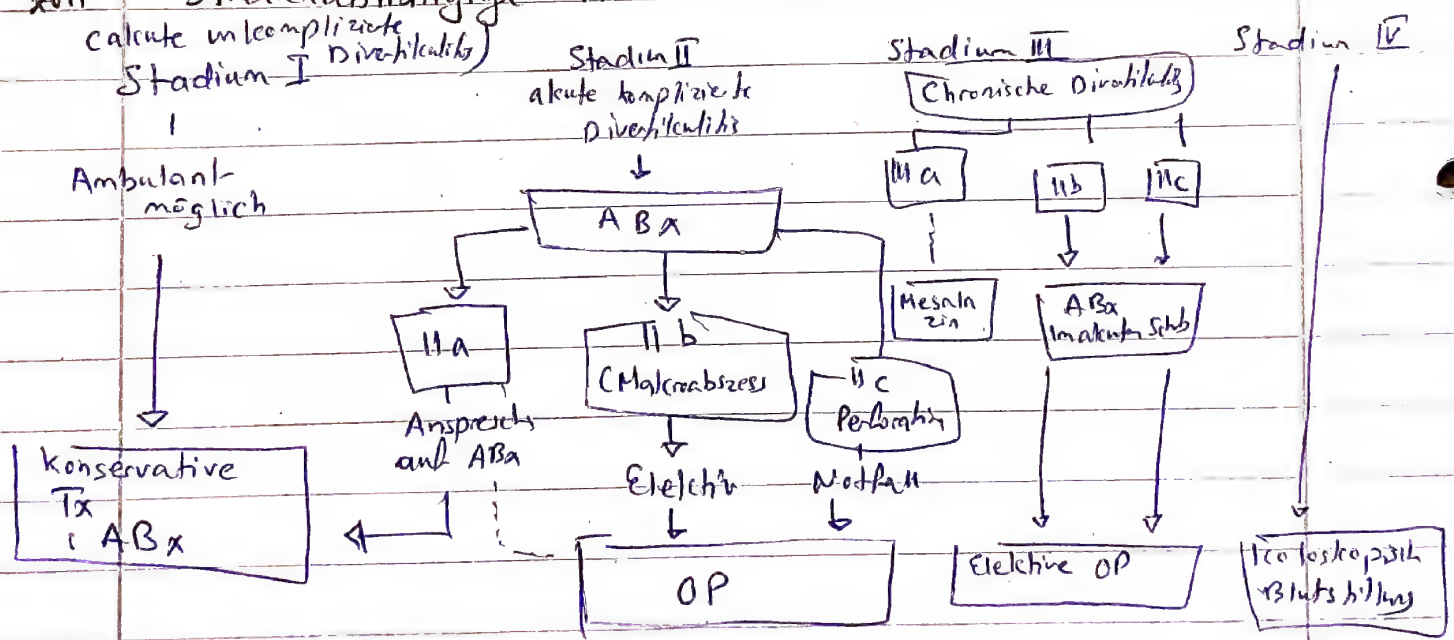 (akute unkomplizierte
Divertikulitis)
Stadium I
Ambulant
möglich
Konservative
Tx
ABx
Stadium II
akute komplizierte
Divertikulitis
ABx
IIa
Ansprechen
auf ABx
II b
(Makroabszess
Elektiv
IIc
Perforation
Notfall
OP
Stadium III
Chronische Divertikulitis
III a
Mesala
zin
IIb
IIc
ABx
Im akuten Schub
Elektive OP
Stadium IV
Koloskopisch
Blutstillung